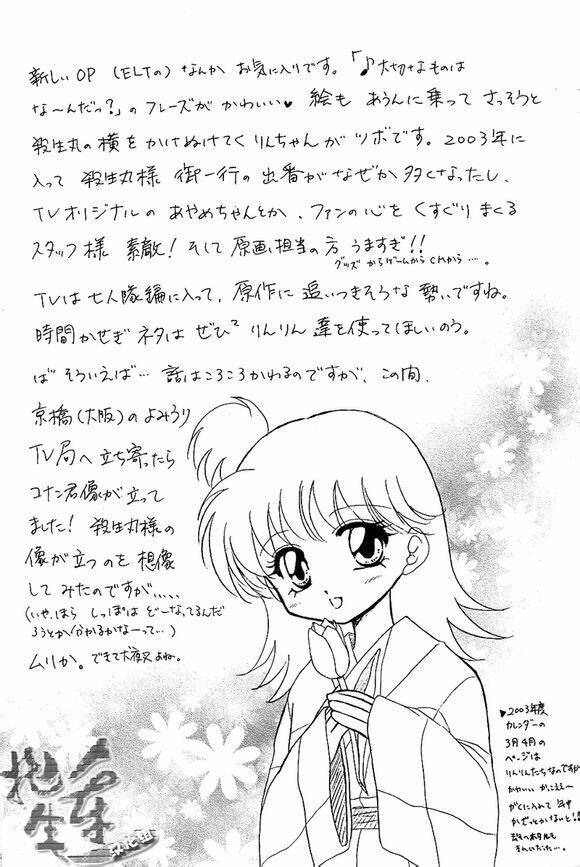 新しいOP（ELTの）なんか お気に入りです。「♪大切なものは
な〜んだっ？」のフレーズが かわいい♥ 絵も あうんに乗って さっそうと
殺生丸の横を かけぬけてく りんちゃんが ツボです。2003年に
入って 殺生丸様 御一行の 出番が なぜか 多くなったし、
TVオリジナルの あやめちゃんとか、ファンの心を くすぐり まくる
スタッフ様 素敵！ そして 原画担当の方 うますぎ！！
グッズ からゲームから CMから…。
TVは七人隊編に入って、原作に 追いつきそうな 勢いですね。
時間かせぎネタは ぜひ² りんりん達を使ってほしいのう。
ばそういえば… 話はころころかわるのですが、この間、
京橋（大阪）のよみうり
TV局へ立ち寄ったら
コナン君像が立って
ました！ 殺生丸様の
像が立つのを想像
してみたのですが、、、、、
（いや、ほら しっぽは どーなってるんだ
ろうとか分かるかなーって…）
ムリか。できて犬夜叉よね。
▶2003年度
カレンダーの
3月4月の
ページは
りんりんたちなのですが
かわいい かっこえぇ〜
がくに入れて 年中
かざっとかないと！！